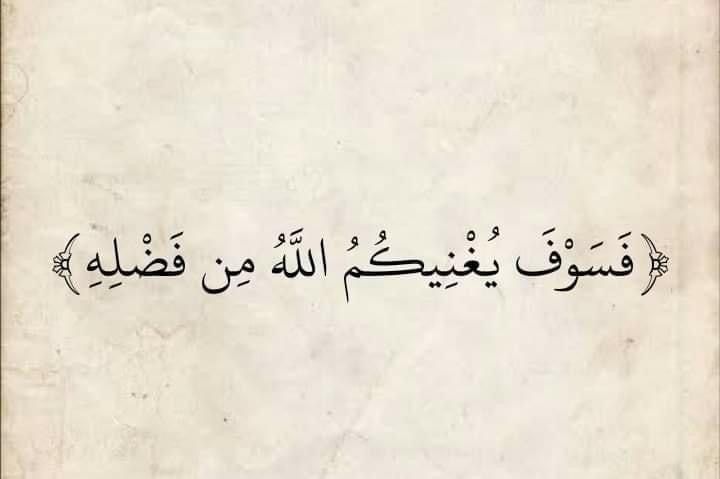 ﴿فَسَوْفَ يُغْنِيكُمُ اللَّهُ مِن فَضْلِهِ﴾